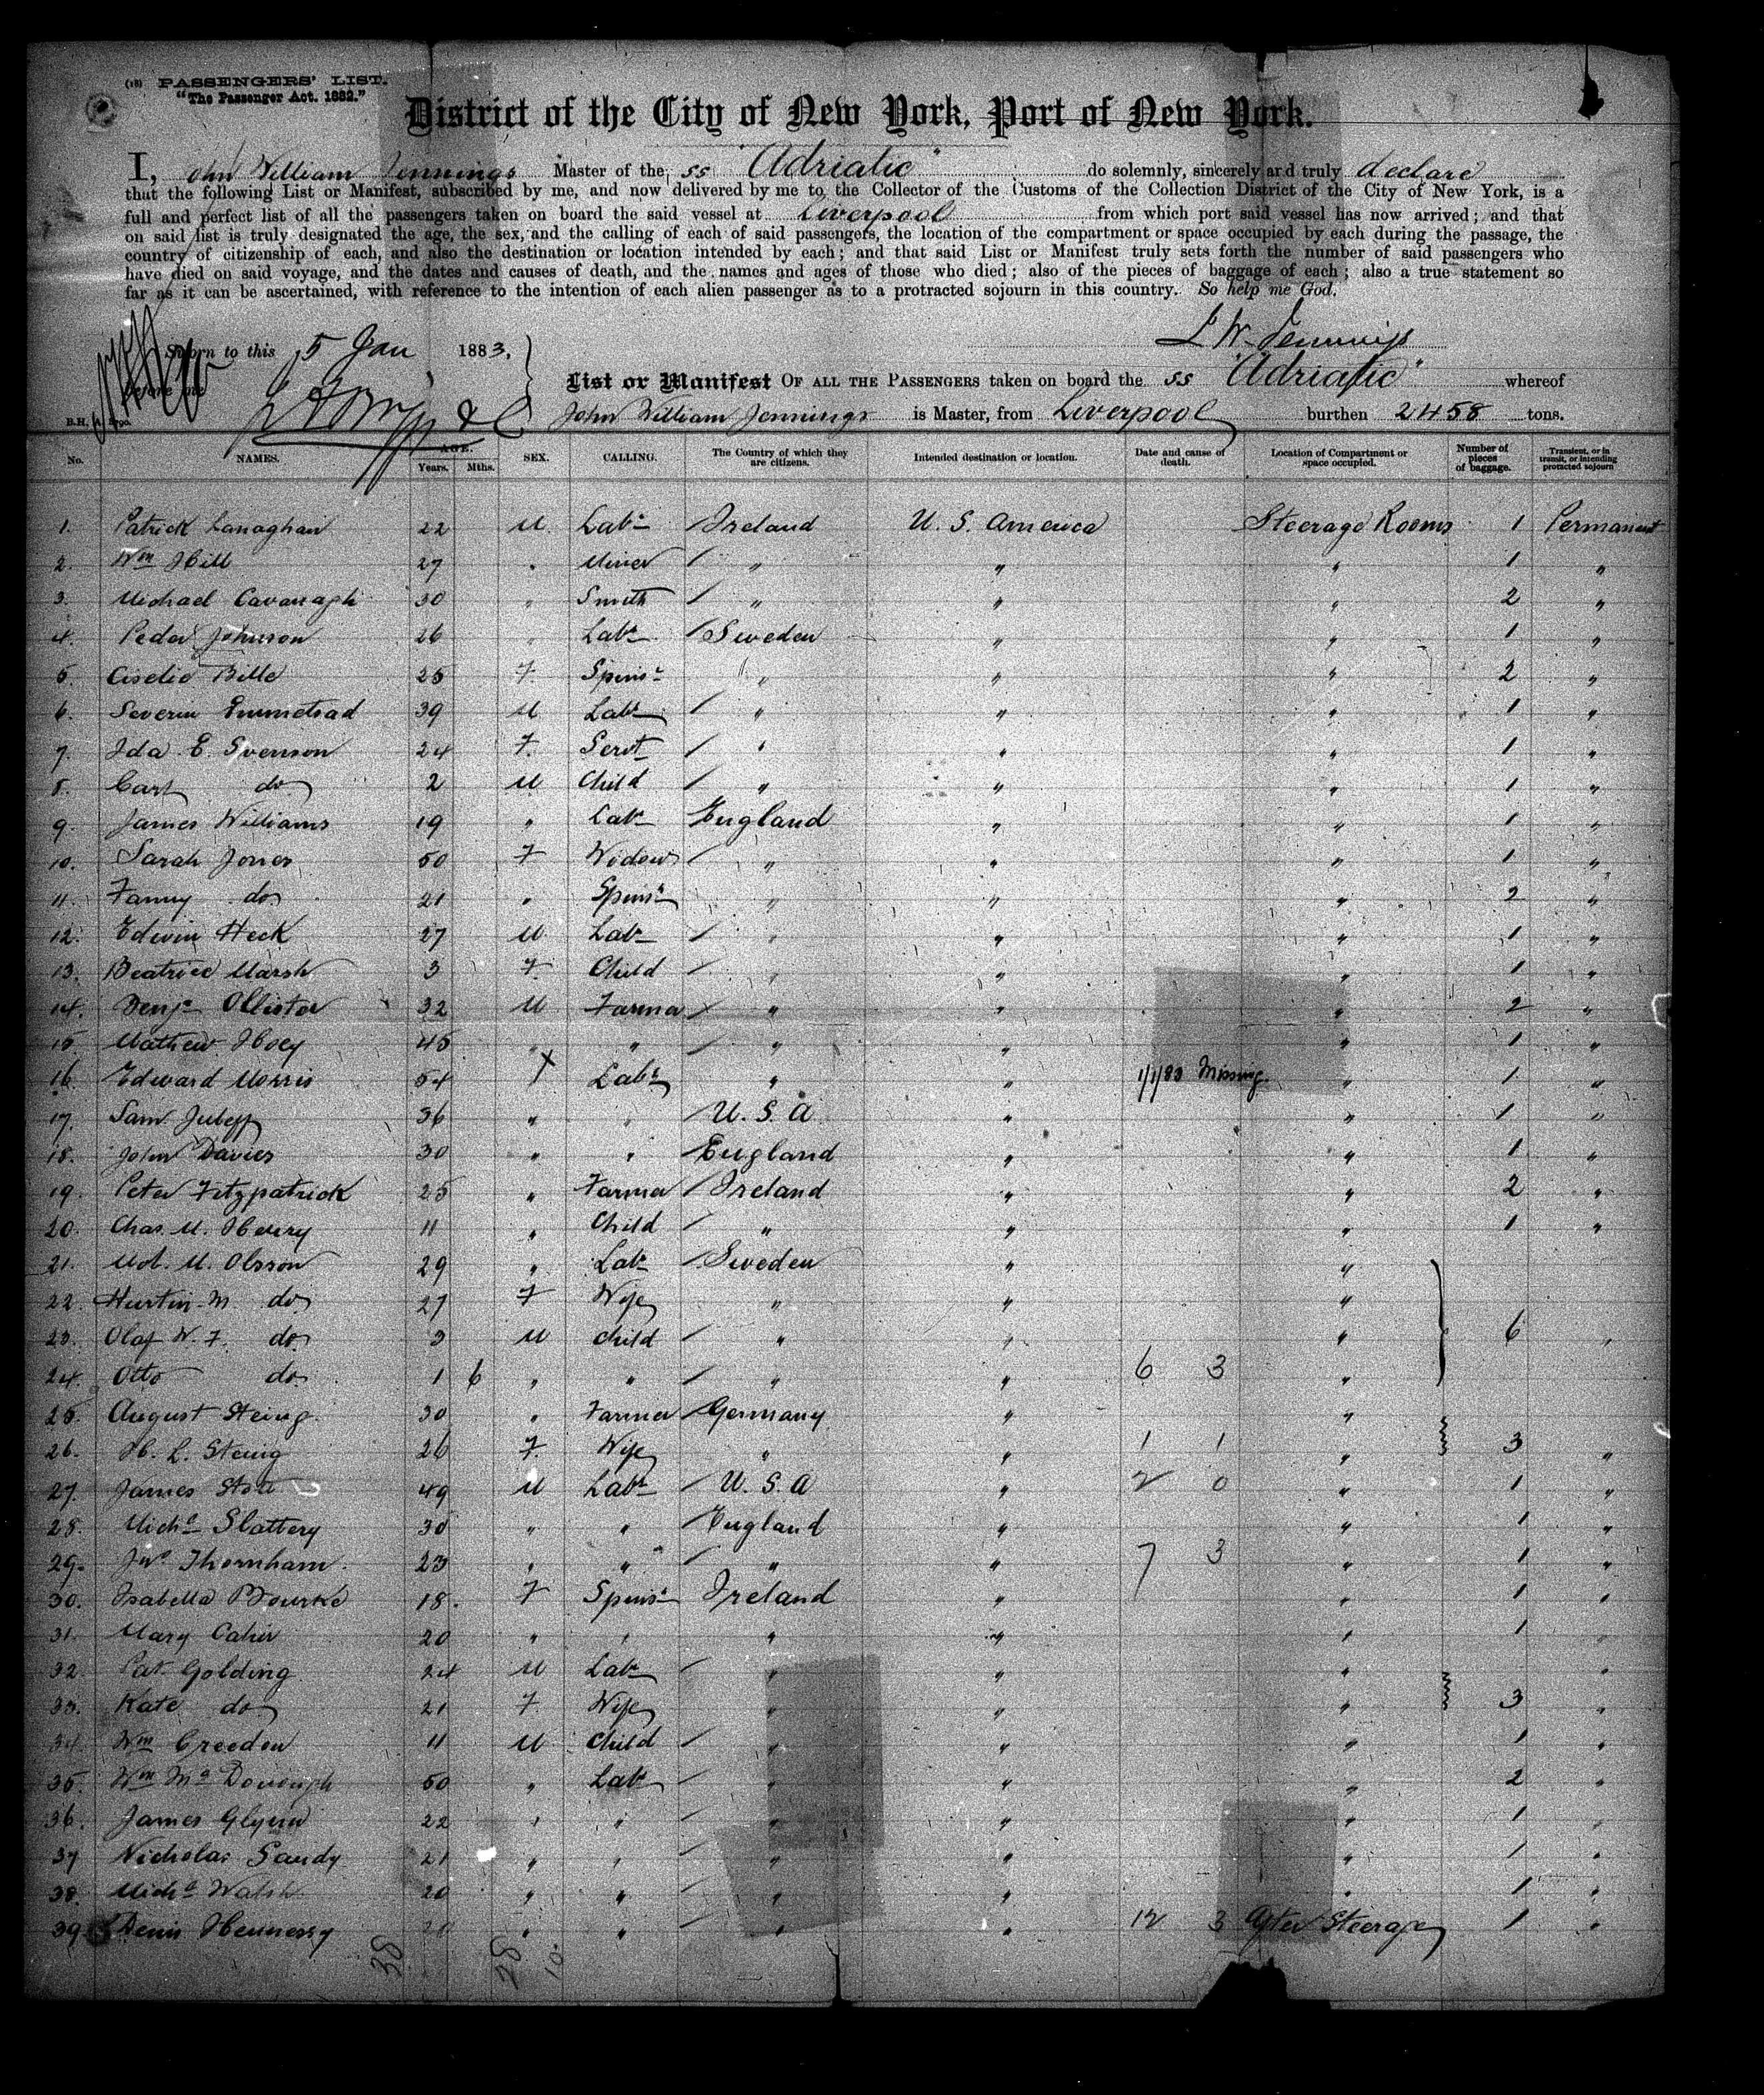 (18) PASSENGERS' LIST.
"The Passenger Act. 1882."
District of the City of New York, Port of New York.
I, John William Jennings Master of the ss "Adriatic" do solemnly, sincerely and truly declare
that the following List or Manifest, subscribed by me, and now delivered by me to the Collector of the Customs of the Collection District of the City of New York, is a
full and perfect list of all the passengers taken on board the said vessel at Liverpool from which port said vessel has now arrived; and that
on said list is truly designated the age, the sex, and the calling of each of said passengers, the location of the compartment or space occupied by each during the passage, the
country of citizenship of each, and also the destination or location intended by each; and that said List or Manifest truly sets forth the number of said passengers who
have died on said voyage, and the dates and causes of death, and the names and ages of those who died; also of the pieces of baggage of each; also a true statement so
far as it can be ascertained, with reference to the intention of each alien passenger as to a protracted sojourn in this country. So help me God.
Sworn to this 5 Jan 1883, J W Jennings
before me
List or Manifest OF ALL THE PASSENGERS taken on board the ss "Adriatic" whereof
John William Jennings is Master, from Liverpool burthen 2458 tons.
No. NAMES. AGE. Years. Mths. SEX. CALLING. The Country of which they are citizens. Intended destination or location. Date and cause of death. Location of Compartment or space occupied. Number of pieces of baggage. Transient, or in transit, or intending protracted sojourn
1. Patrick Lanaghan 22 M Labr Ireland U. S. America Steerage Rooms 1 Permanent
2. Wm Hill 27 " Miner " " " 1 "
3. Michael Cavanagh 30 " Smith " " " 2 "
4. Peder Johnson 26 " Labr Sweden " " 1 "
5. Ciselie Bille 25 F Spinsr " " " 2 "
6. Severin Emmetsad 39 M Labr " " " 1 "
7. Ida E. Svenson 24 F Servt " " " 1 "
8. Carl do 2 M Child " " " 1 "
9. James Williams 19 " Labr England " " 1 "
10. Sarah Jones 50 F Widow " " " 1 "
11. Fanny do 21 " Spinsr " " " 2 "
12. Edwin Heck 27 M Labr " " " 1 "
13. Beatrice Marsh 3 F Child " " " 1 "
14. Benjn Ollister 32 M Farmer " " " 2 "
15 Mathew Hoey 45 " " " " " 1 "
16. Edward Morris 54 X Labr " " 1/1/83 Missing. " 1 "
17. Sam Jubeff 36 " " U. S. A " " 1 "
18. John Davies 30 " " England " " 1 "
19. Peter Fitzpatrick 25 " Farmer Ireland " " 2 "
20. Chas. M. Henry 11 " Child " " " 1 "
21. M. Olsson 29 " Labr Sweden " "
22. M. do 27 F Wife " " "
23. Olaf W. F. do 3 M child " " " 6 "
24. Otto do 1 6 " " " " 6 3 "
25. August Steing. 30 " Farmer Germany " "
26. H. L. Steing 26 F Wife " " 1 1 " 3 "
27. James Stott 49 M Labr U. S. A " 2 0 " 1 "
28. Michl Slattery 30 " " England " " 1 "
29. Jno Thornham 23 " " " " 7 3 " 1 "
30. Isabella Bourke 18. F Spinsr Ireland " " 1 "
31. Mary Cahir 20 " " " " " 1 "
32. Pat Golding 24 M Labr " " " "
33. Kate do 21 F Wife " " " 3 "
34. Wm Creedon 11 M Child " " " 1 "
35. Wm McDonough 50 " Labr " " " 2 "
36. James Glynn 22 " " " " " 1 "
37 Nicholas Gandy 21 " " " " " 1 "
38. Michl Walsh 20 " " " " " 1 "
39 Denis Hennessy " " " " 12 3 After Steerage 1 "
38 28 10